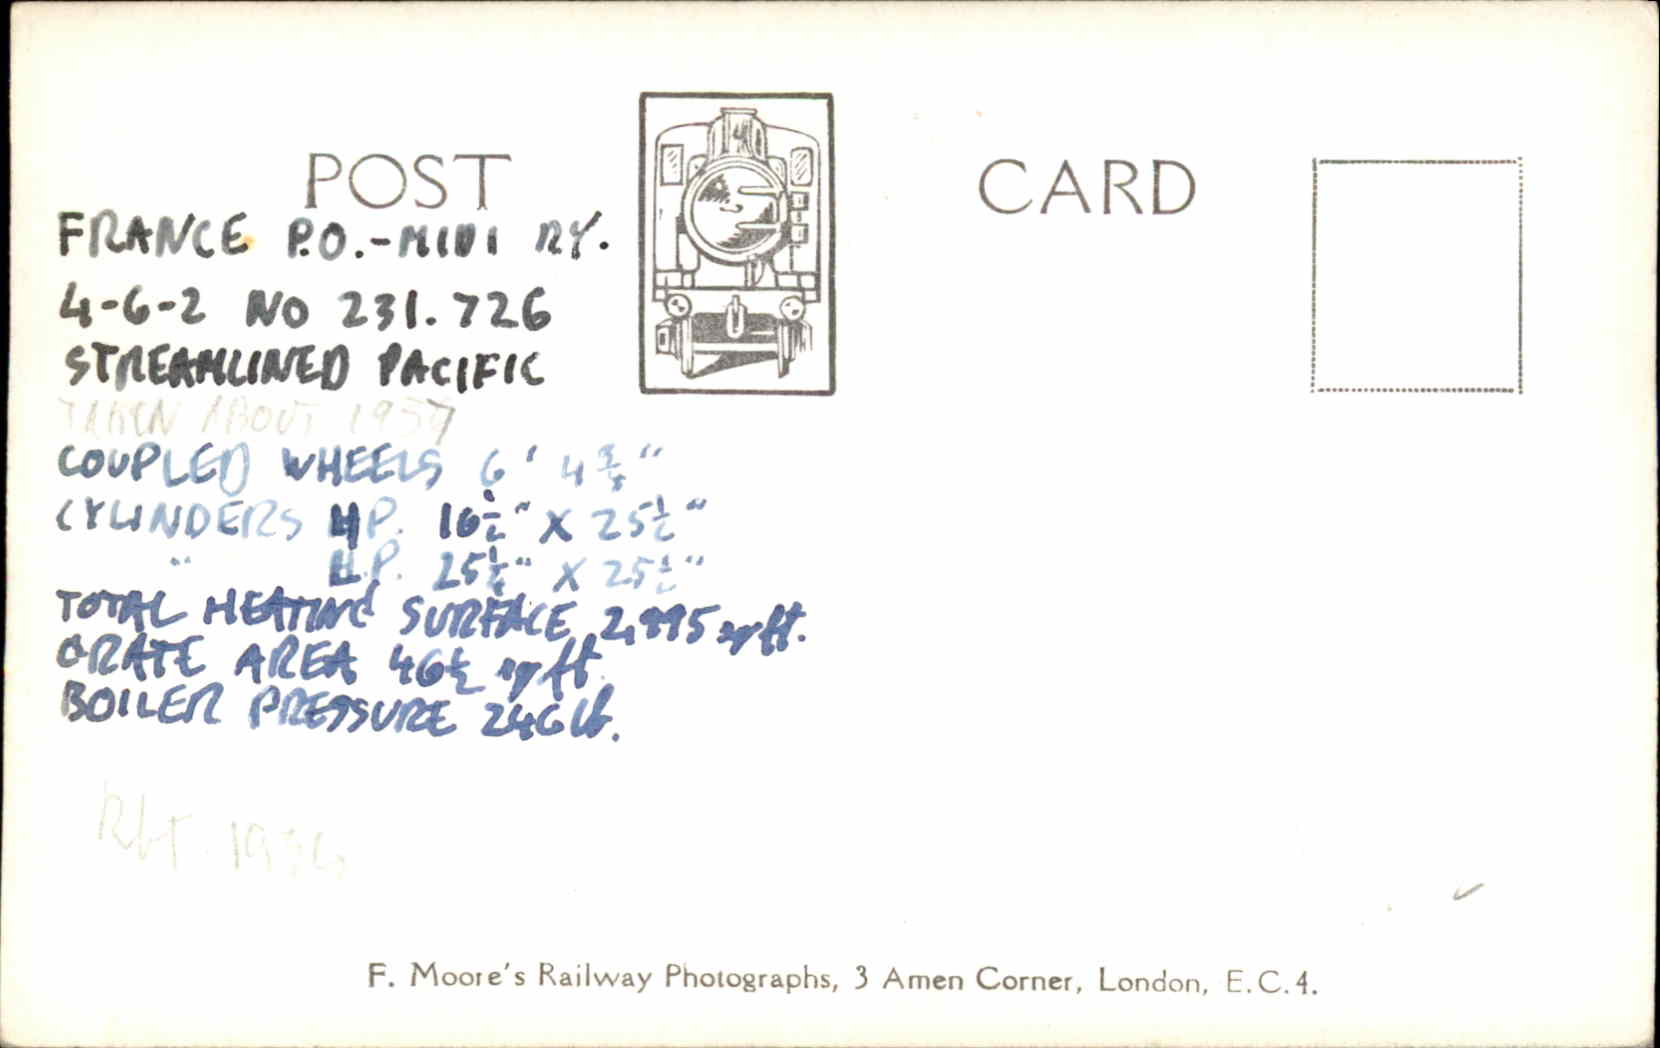 POST CARD
FRANCE P.O.-MIDI RY.
4-6-2 NO 231.726
STREAMLINED PACIFIC
TAKEN ABOUT 1937
COUPLED WHEELS 6' 4 3/4"
CYLINDERS H.P. 16 1/2" X 25 1/2"
" P. 25 1/4" X 25 1/2"
TOTAL HEATING SURFACE 2,995 sq ft.
GRATE AREA 46 1/2 sq ft.
BOILER PRESSURE 246 lb.
1936
F. Moore's Railway Photographs, 3 Amen Corner, London, E.C.4.